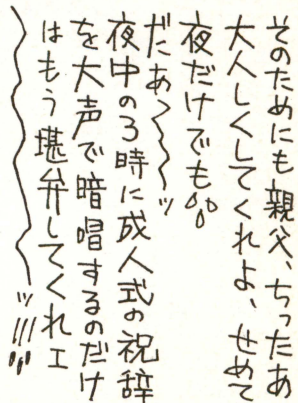 そのためにも親父、ちったあ
大人しくしてくれよ、せめて
夜だけでも
だあ〜〜〜ッ
夜中の3時に成人式の祝辞
を大声で暗唱するのだけ
はもう堪弁してくれェ
〜〜〜〜ッ!!!